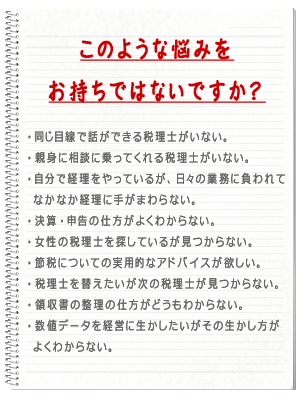 このような悩みを
お持ちではないですか？
・同じ目線で話ができる税理士がいない。
・親身に相談に乗ってくれる税理士がいない。
・自分で経理をやっているが、日々の業務に負われて
なかなか経理に手がまわらない。
・決算・申告の仕方がよくわからない。
・女性の税理士を探しているが見つからない。
・節税についての実用的なアドバイスが欲しい。
・税理士を替えたいが次の税理士が見つからない。
・領収書の整理の仕方がどうもわからない。
・数値データを経営に生かしたいがその生かし方が
よくわからない。